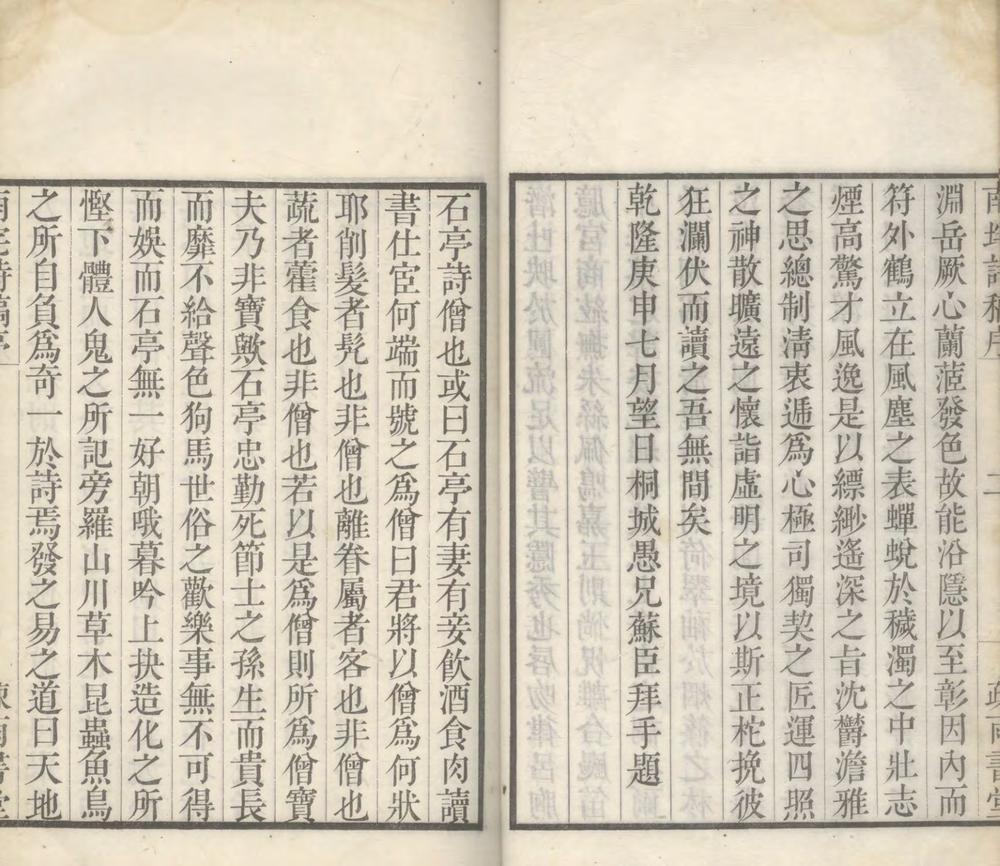 南垞詩稿序
二
疏雨書堂
淵岳厥心蘭茝發色故能沿隱以至彰因內而
符外鶴立在風塵之表蟬蛻於穢濁之中壯志
煙高驚才風逸是以縹緲遙深之旨沈鬱澹雅
之思總制淸衷遞爲心極司獨契之匠運四照
之神散曠遠之懷詣虛明之境以斯正柁挽彼
狂瀾伏而讀之吾無間矣
乾隆庚申七月望日桐城愚兄蘇臣拜手題
石亭詩僧也或曰石亭有妻有妾飮酒食肉讀
書仕宦何端而號之爲僧曰君將以僧爲何狀
耶削髮者髡也非僧也離眷屬者客也非僧也
蔬者藿食也非僧也若以是爲僧則所爲僧寶
夫乃非寶歟石亭忠勤死節士之孫生而貴長
而靡不給聲色狗馬世俗之歡樂事無不可得
而娛而石亭無一好朝哦暮吟上抉造化之所
慳下體人鬼之所記旁羅山川草木昆蟲魚鳥
之所自負爲奇一於詩焉發之易之道曰天地